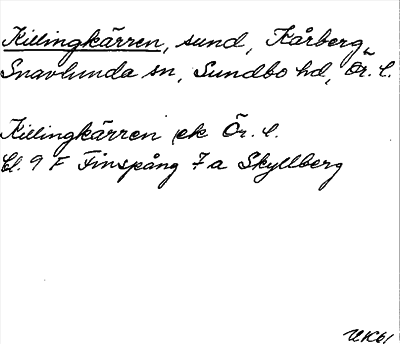 Killingkärren, sund, Kårberg,
Snavlunda sn, Sundbo hd, Ör. l.
Killingkärren ek Ör. l.
Bl. 9 F Finspång 7 a Skyllberg
UK61